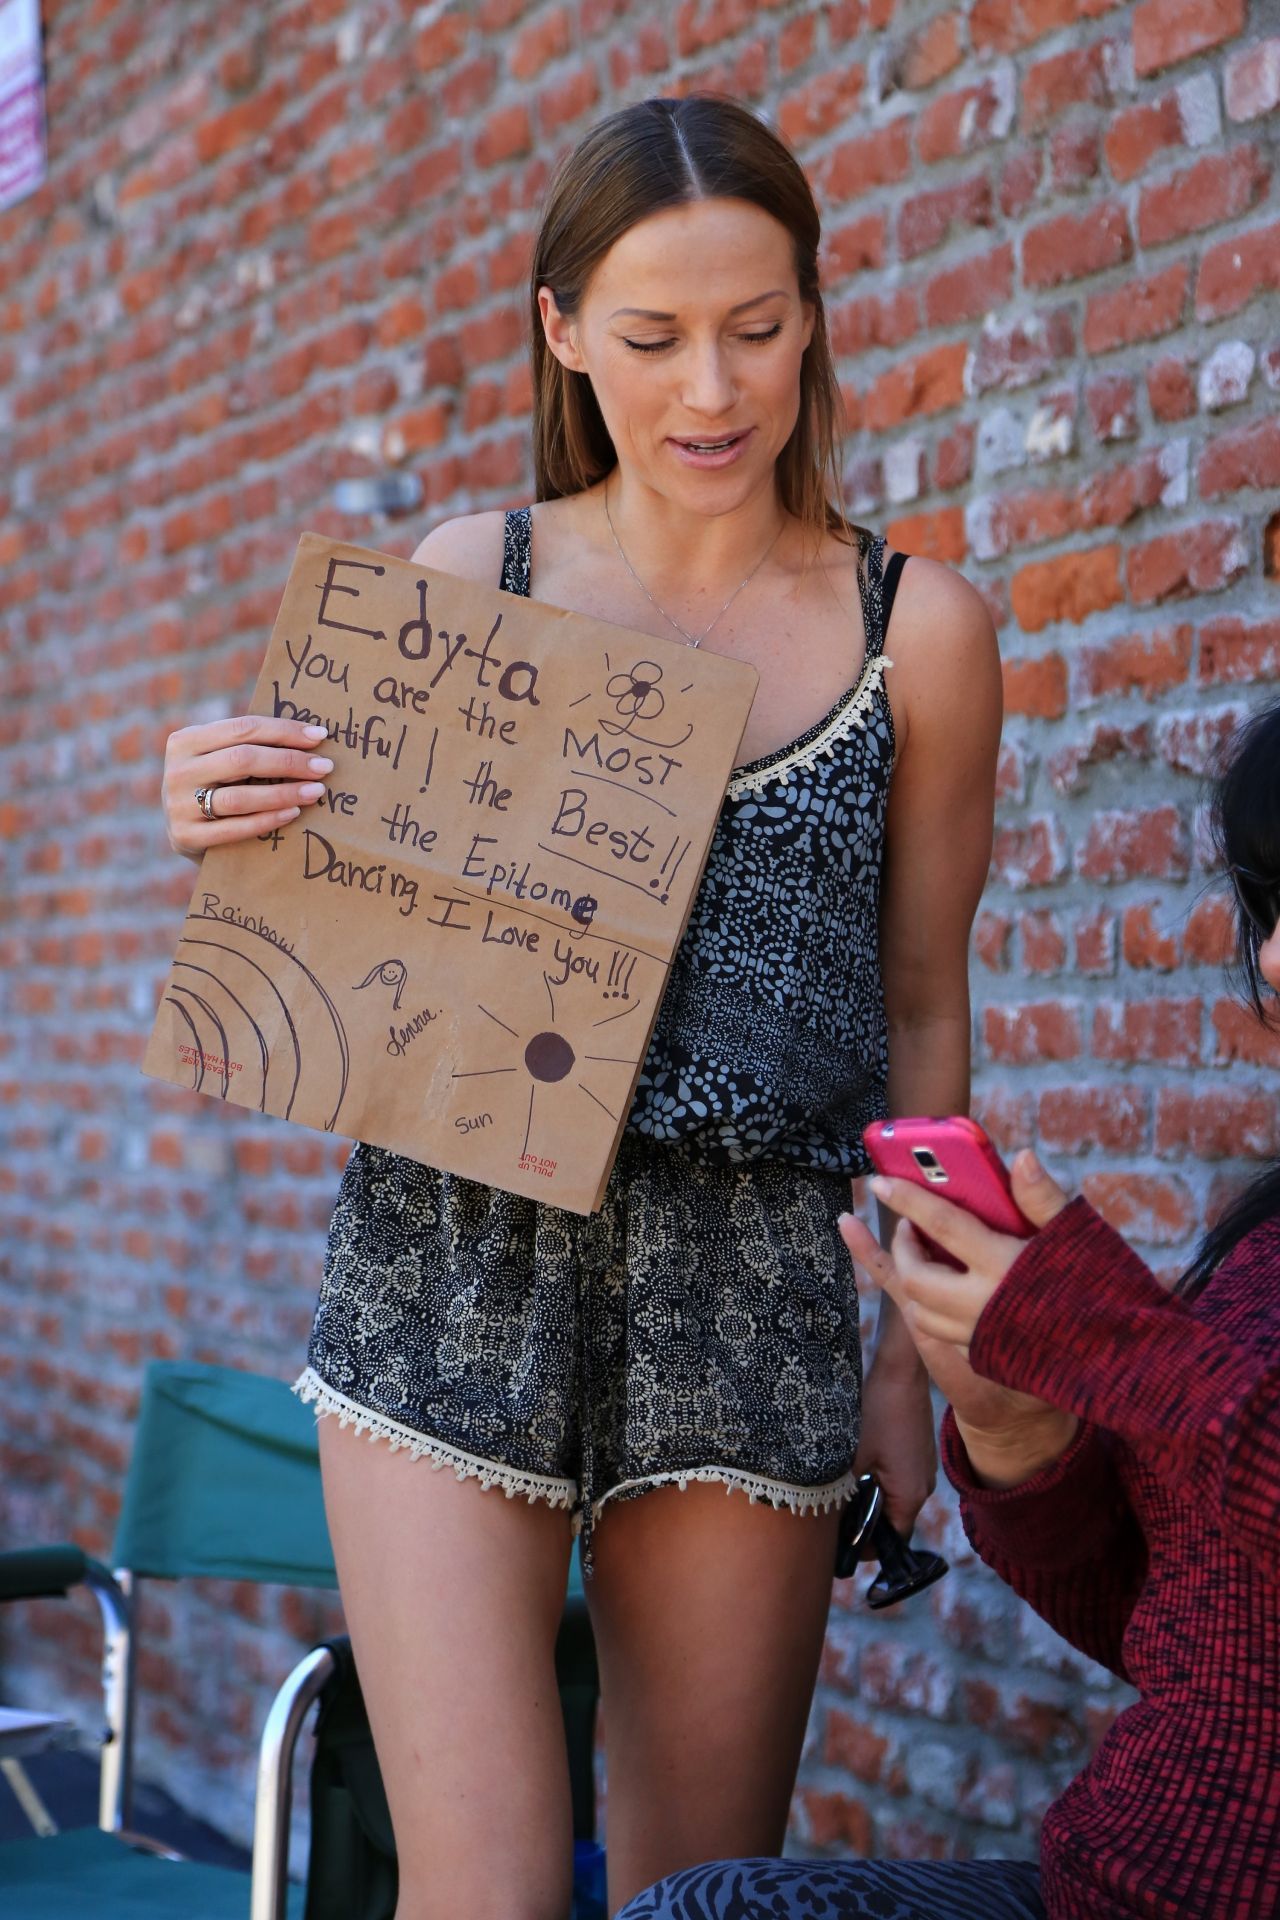 Edyta
You are the MOST
beautiful! the Best!!
are the Epitome
of Dancing I Love you!!!
Rainbow
Sun
PLEASE USE
BOTH HANDLES
PULL UP
NOT OUT